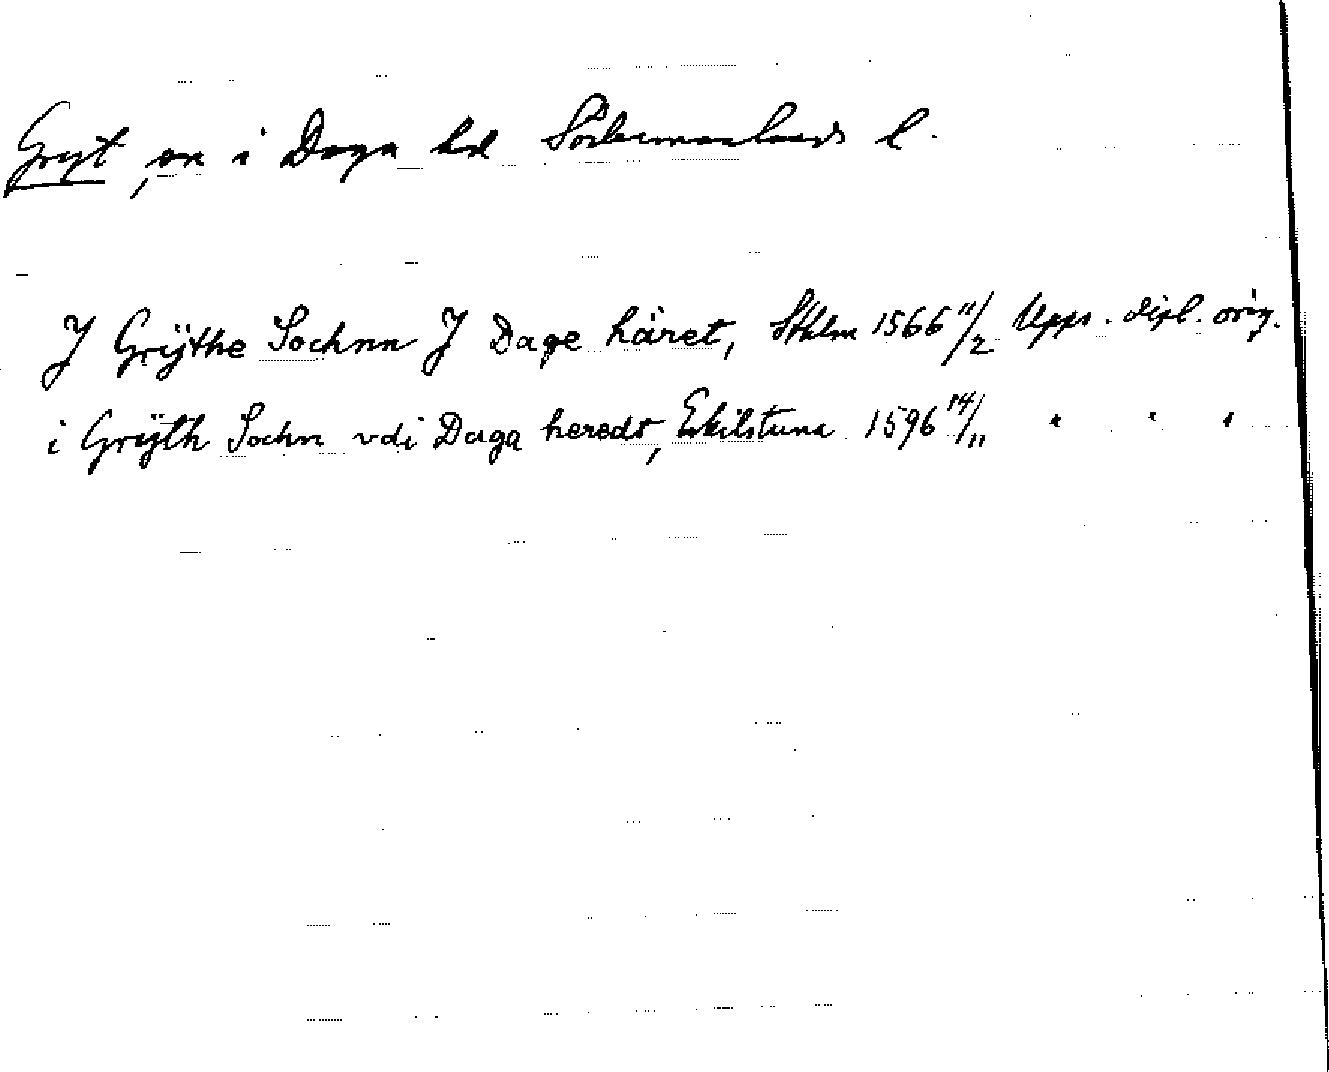 Gryt, sn i Daga hd Södermanlands l.
J Grÿthe Sochnn J Dage häret, Sthlm 1566 11/2 Upps. dipl. orig.
i Grÿth Sochn vdi Daga heredt, Eskilstuna 1596 14/11 " " "